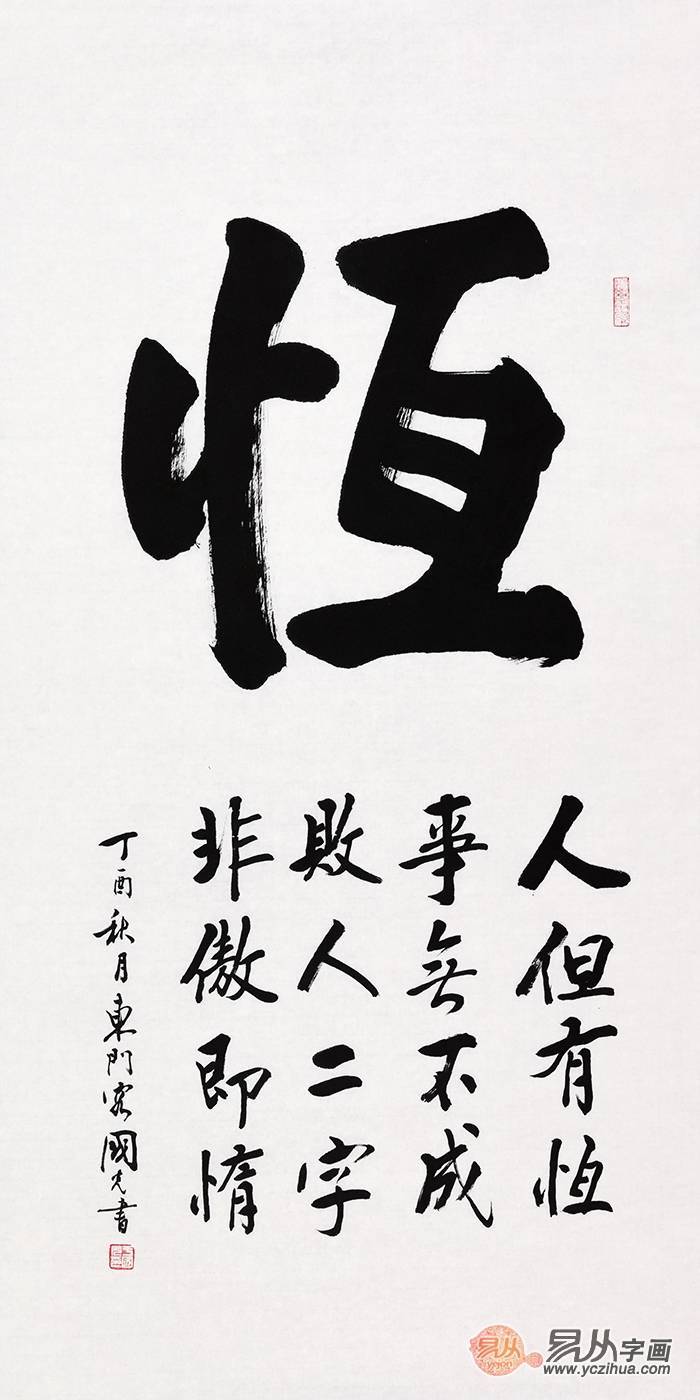 恆
人但有恆
事無不成
敗人二字
非傲即惰
丁酉秋月東門客國光書
易从字画
www.yczihua.com